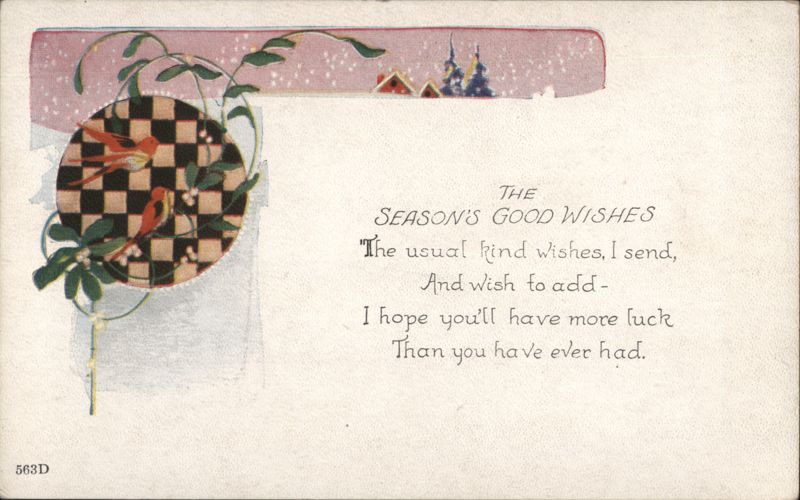 THE
SEASON'S GOOD WISHES
The usual kind wishes, I send,
And wish to add-
I hope you'll have more luck
Than you have ever had.
563D